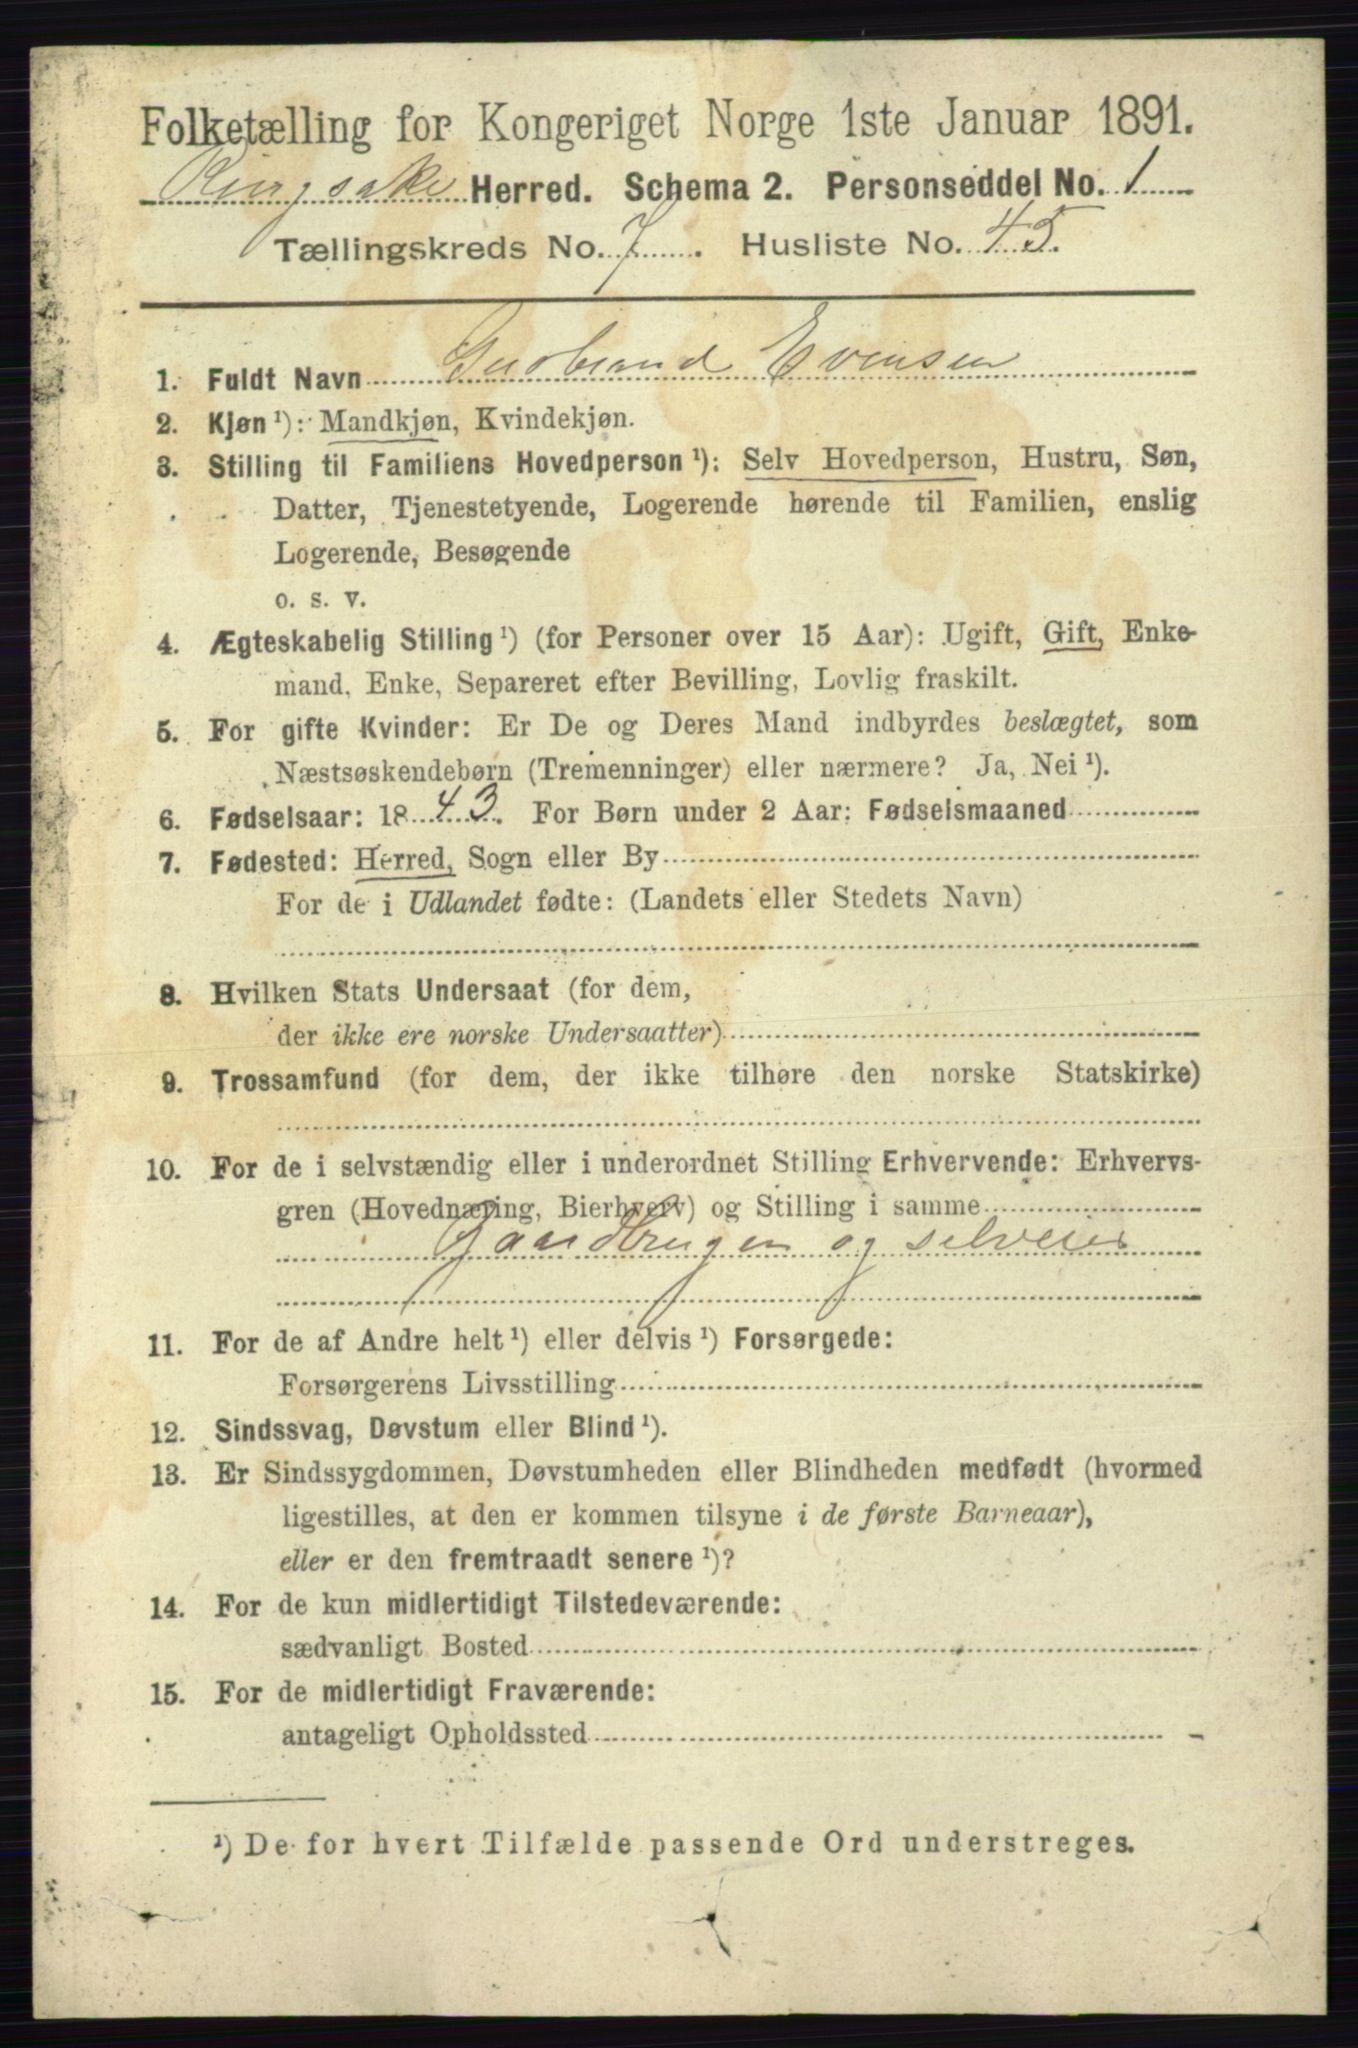 Folketælling for Kongeriget Norge 1ste Januar 1891.
Ringsaker Herred. Schema 2. Personseddel No. 1
Tællingskreds No. 7. Husliste No. 45.
1. Fuldt Navn Gudbrand Evensen
2. Kjøn ¹): Mandkjøn, Kvindekjøn.
3. Stilling til Familiens Hovedperson ¹): Selv Hovedperson, Hustru, Søn,
Datter, Tjenestetyende, Logerende hørende til Familien, enslig
Logerende, Besøgende
o. s. v.
4. Ægteskabelig Stilling ¹) (for Personer over 15 Aar): Ugift, Gift, Enke-
mand, Enke, Separeret efter Bevilling, Lovlig fraskilt.
5. For gifte Kvinder: Er De og Deres Mand indbyrdes beslægtet, som
Næstsøskendebørn (Tremenninger) eller nærmere? Ja, Nei ¹).
6. Fødselsaar: 1843. For Børn under 2 Aar: Fødselsmaaned
7. Fødested: Herred, Sogn eller By
For de i Udlandet fødte: (Landets eller Stedets Navn)
8. Hvilken Stats Undersaat (for dem,
der ikke ere norske Undersaatter)
9. Trossamfund (for dem, der ikke tilhøre den norske Statskirke)
10. For de i selvstændig eller i underordnet Stilling Erhvervende: Erhvervs-
gren (Hovednæring, Bierhverv) og Stilling i samme
Gaardbruger og selveier
11. For de af Andre helt ¹) eller delvis ¹) Forsørgede:
Forsørgerens Livsstilling
12. Sindssvag, Døvstum eller Blind ¹).
13. Er Sindssygdommen, Døvstumheden eller Blindheden medfødt (hvormed
ligestilles, at den er kommen tilsyne i de første Barneaar),
eller er den fremtraadt senere ¹)?
14. For de kun midlertidigt Tilstedeværende:
sædvanligt Bosted
15. For de midlertidigt Fraværende:
antageligt Opholdssted
¹) De for hvert Tilfælde passende Ord understreges.